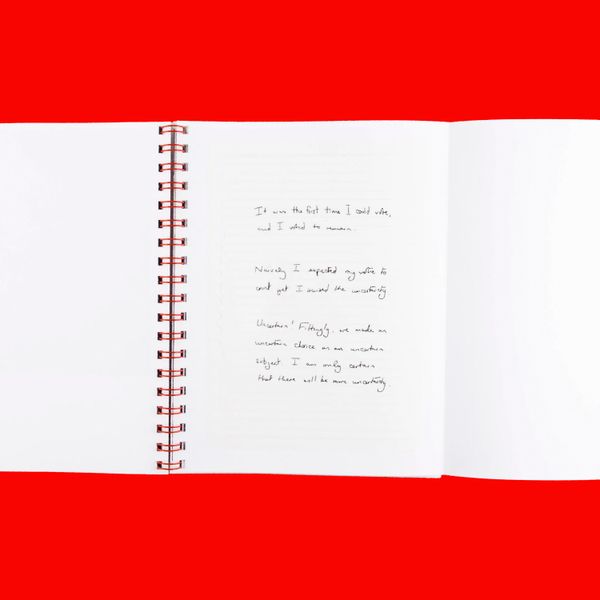 It was the first time I could vote,
and I voted to remain.
Naively I expected my vote to
count yet I missed the uncertainty
Uncertain! Fittingly, we made an
uncertain choice on an uncertain
subject. I am only certain
that there will be more uncertainty.